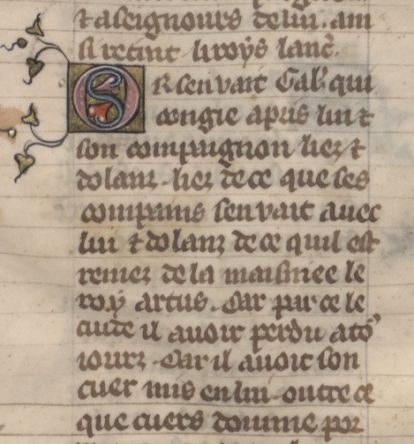 ⁊ a seignours de lui. ain
si retint li roys lanc̄.
OR sen vait Gal'. qui
congie a pris lui ⁊
son compaignon liez ⁊
dolanz. liez de ce que ses
compains sen vait auec
lui ⁊ dolanz de ce quil est
remez de la maisniee le
roy artus. Car par ce le
cuide il auoir perdu a toꝰ
iourz. Car il auoit son
cuer mis en lui. outre ce
que cuers domme por